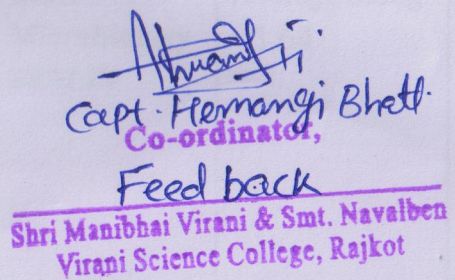 Capt. Hemangi Bhatt.
Co-ordinator,
Feed back
Shri Manibhai Virani & Smt. Navalben
Virani Science College, Rajkot